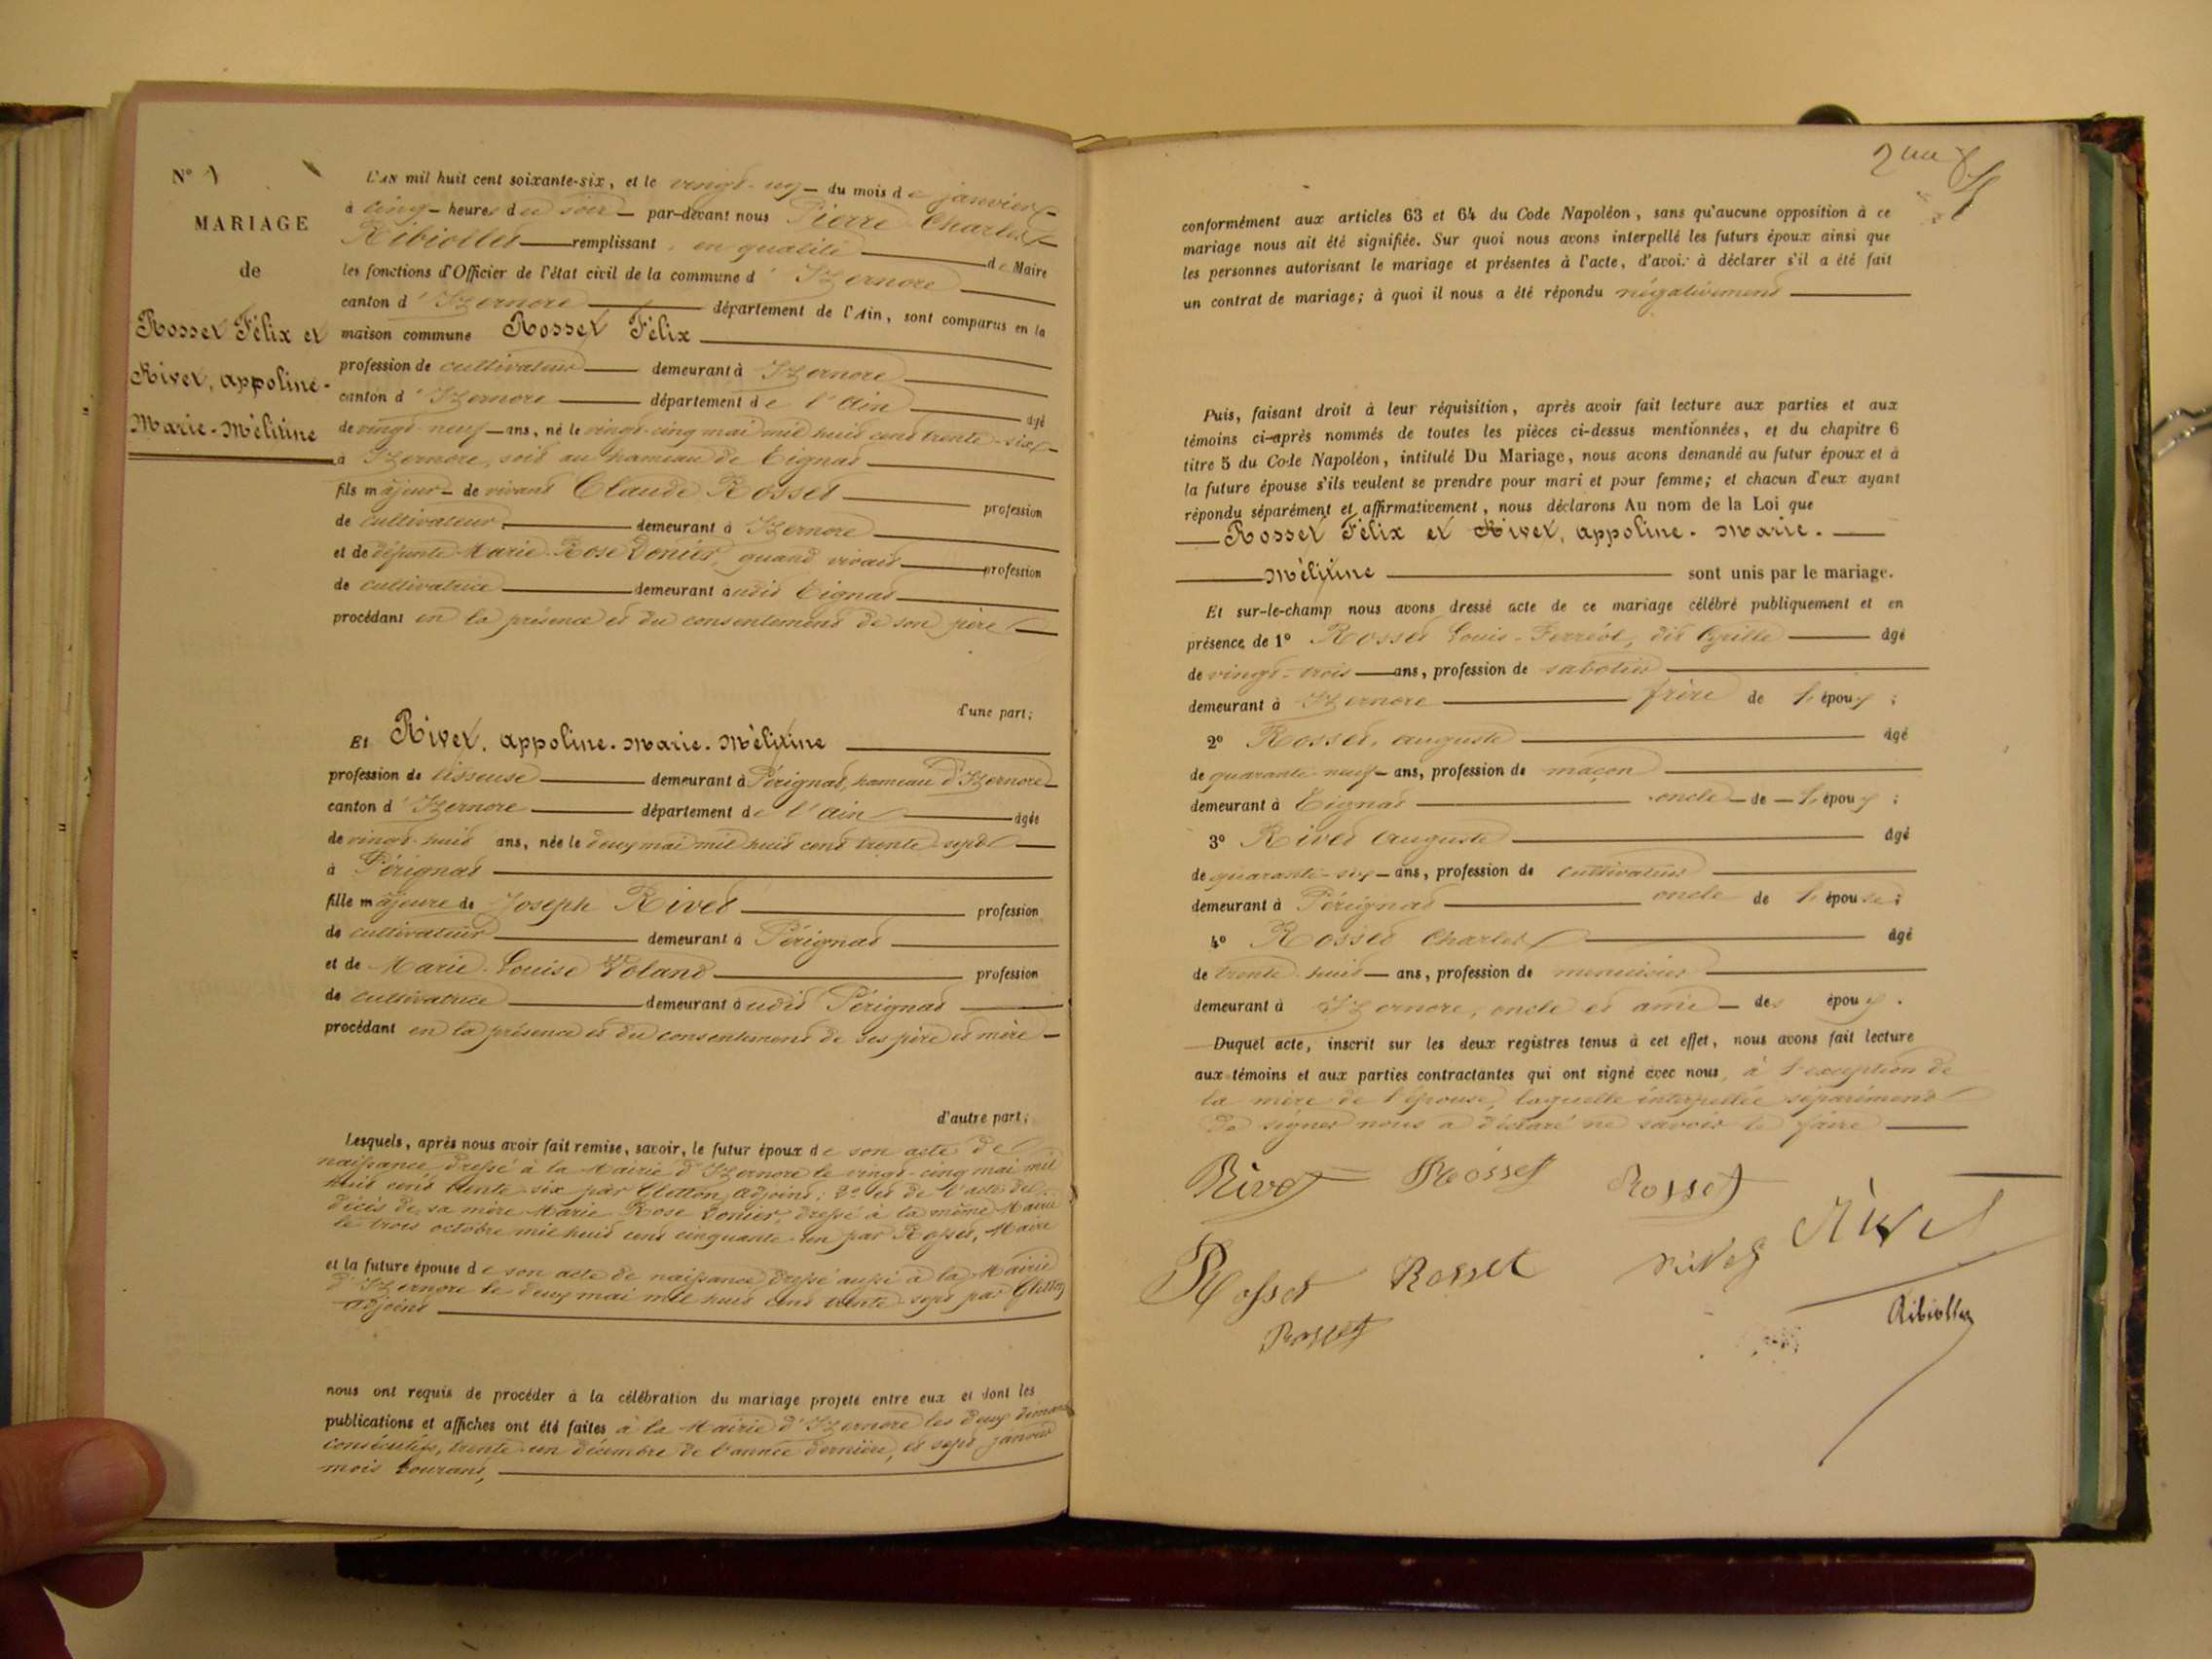 N° 1
MARIAGE
de
Rosset Félix et
Rivet, appoline-
Marie-Mélitine
L'AN mil huit cent soixante-six, et le vingt-un du mois de janvier
à cinq heures du soir par-devant nous Pierre Charles
Ribiollet remplissant, en qualité de Maire
les fonctions d'Officier de l'état civil de la commune d'Izernore
canton d'Izernore département de l'Ain, sont comparus en la
maison commune Rosset Félix
profession de cultivateur demeurant à Izernore
canton d'Izernore département de l'Ain âgé
de vingt-neuf ans, né le vingt-cinq mai mil huit cent trente-six
à Izernore, soit au hameau de Tignat
fils majeur de vivant Claude Rosset profession
de cultivateur, demeurant à Izernore
et de défunte Marie-Rose Donier, quand vivait profession
de cultivatrice demeurant audit Tignat
procédant en la présence et du consentement de son père
d'une part;
Et Rivet, appoline-Marie-Mélitine
profession de lisseuse demeurant à Pérignat, hameau d'Izernore
canton d'Izernore département de l'ain âgée
de vingt-huit ans, née le deux mai mil huit cent trente-sept
à Pérignat
fille majeure de Joseph Rivet profession
de cultivateur demeurant à Pérignat
et de Marie-Louise Voland profession
de cultivatrice demeurant audit Pérignat
procédant en la présence et du consentement de ses père et mère
d'autre part;
Lesquels, après nous avoir fait remise, savoir, le futur époux de son acte de
naissance, dressé à la Mairie d'Izernore le vingt-cinq mai mil
huit cent trente-six par Gletton, adjoint; 2° et de l'acte de
décès de sa mère Marie Rose Donier, dressé à la même Mairie
le trois octobre mil huit cent cinquante-un par Rosset, Maire
et la future épouse de son acte de naissance, dressé aussi à la Mairie
d'Izernore le deux mai mil huit cent trente-sept par Gletton
adjoint
nous ont requis de procéder à la célébration du mariage projeté entre eux et dont les
publications et affiches ont été faites à la Mairie d'Izernore les deux
consécutifs, trente-un décembre de l'année dernière, et sept janvier
mois courant,
2me
conformément aux articles 63 et 64 du Code Napoléon, sans qu'aucune opposition à ce
mariage nous ait été signifiée. Sur quoi nous avons interpellé les futurs époux ainsi que
les personnes autorisant le mariage et présentes à l'acte, d'avoir à déclarer s'il a été fait
un contrat de mariage; à quoi il nous a été répondu négativement
Puis, faisant droit à leur réquisition, après avoir fait lecture aux parties et aux
témoins ci-après nommés de toutes les pièces ci-dessus mentionnées, et du chapitre 6
titre 5 du Code Napoléon, intitulé Du Mariage, nous avons demandé au futur époux et à
la future épouse s'ils veulent se prendre pour mari et pour femme; et chacun d'eux ayant
répondu séparément et affirmativement, nous déclarons Au nom de la Loi que
Rosset Félix et Rivet, appoline-Marie-
Mélitine sont unis par le mariage.
Et sur-le-champ nous avons dressé acte de ce mariage célébré publiquement et en
présence de 1° Rosset Louis-Ferréol, dit âgé
de vingt-trois ans, profession de sabotier
demeurant à Izernore frère de l'époux;
2° Rosset, auguste âgé
de quarante-neuf ans, profession de maçon
demeurant à Tignat oncle de l'époux;
3° Rivet Auguste âgé
de quarante-six ans, profession de cultivateur
demeurant à Pérignat oncle de l'épouse;
4° Rosset Charles âgé
de trente-huit ans, profession de menuisier
demeurant à Izernore, oncle et ami des époux.
Duquel acte, inscrit sur les deux registres tenus à cet effet, nous avons fait lecture
aux témoins et aux parties contractantes qui ont signé avec nous, à l'exception de
la mère de l'épouse, laquelle interpellée séparément
de signer nous a déclaré ne savoir le faire
Rivet Rosset Rosset
Rosset Rosset rivet Rivet
Rosset
Ribiollet